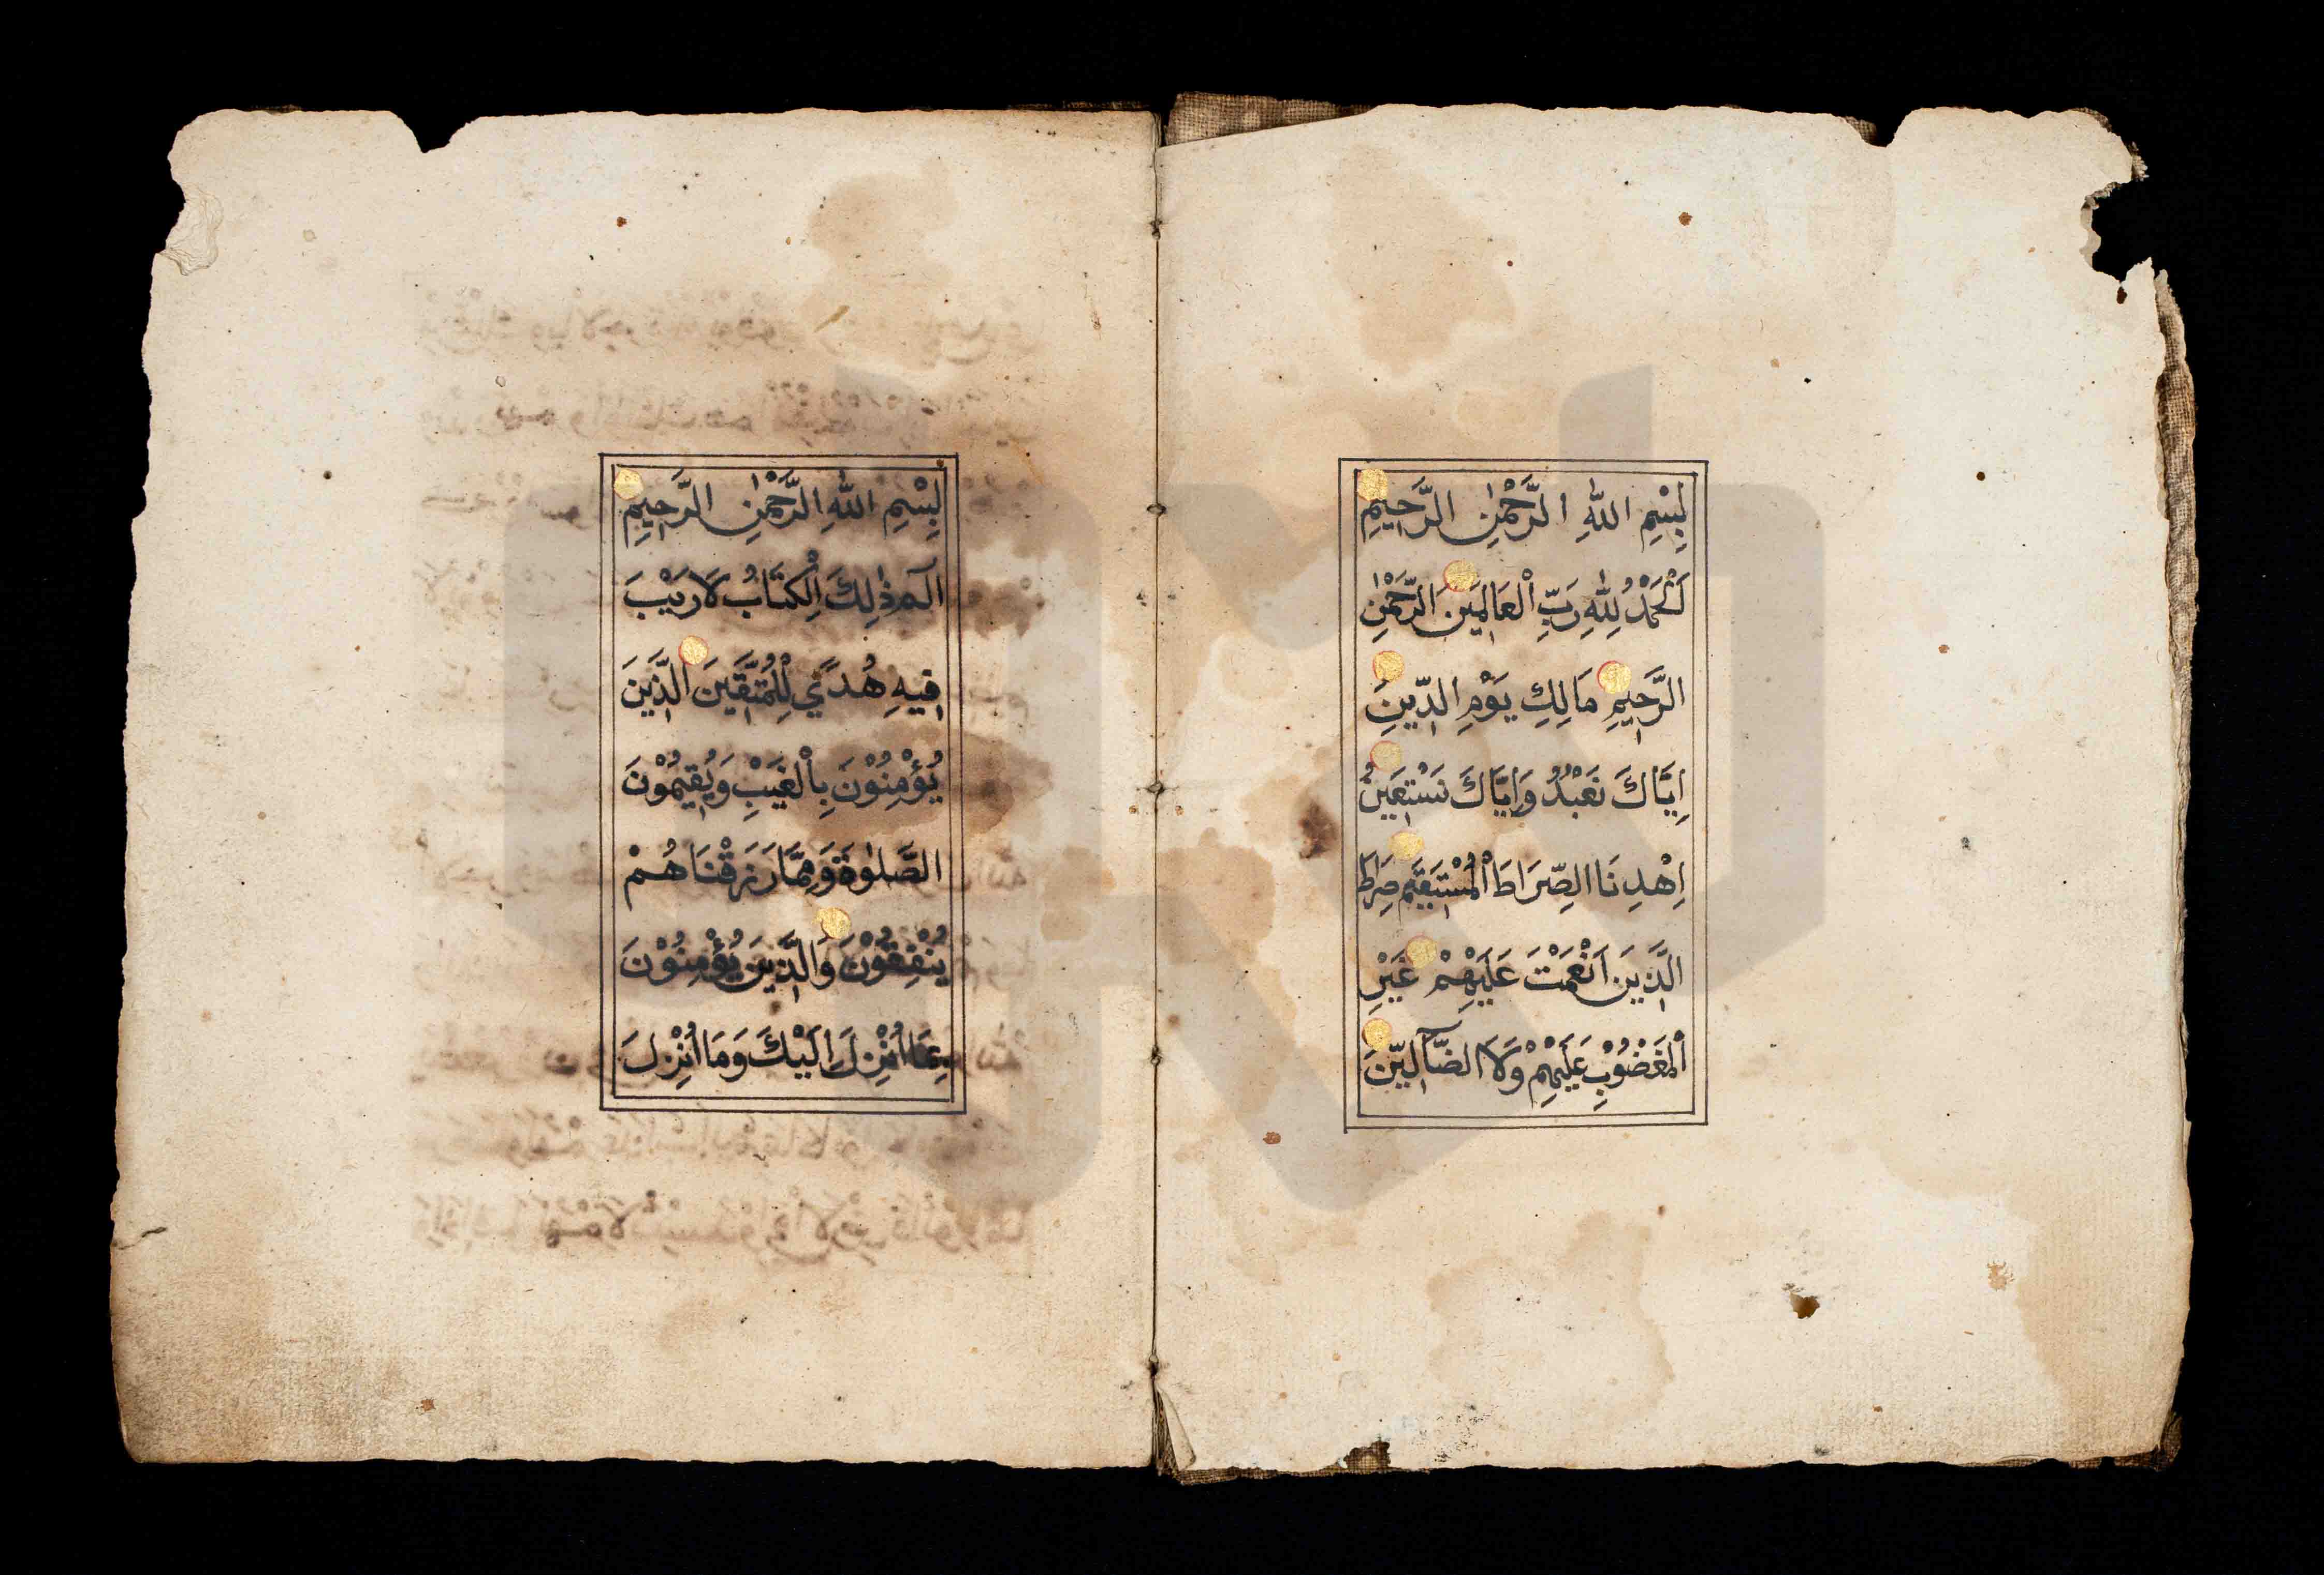 بِسْمِ اللهِ الرَّحْمٰنِ الرَّحِيمِ
لْحَمْدُ لِلّٰهِ رَبِّ الْعَالَمِينَ الرَّحْمٰنِ
الرَّحِيمِ مَالِكِ يَوْمِ الدِّينِ
اِيَّاكَ نَعْبُدُ وَاِيَّاكَ نَسْتَعِينُ
اِهْدِنَا الصِّرَاطَ الْمُسْتَقِيمَ صِرَاطَ
الَّذِينَ اَنْعَمْتَ عَلَيْهِمْ غَيْرِ
الْمَغْضُوْبِ عَلَيْهِمْ وَلَا الضَّآلِّينَ
بِسْمِ اللهِ الرَّحْمٰنِ الرَّحِيمِ
الٓمٓ ذٰلِكَ الْكِتَابُ لَا رَيْبَ
فِيهِ هُدًي لِلْمُتَّقِينَ الَّذِينَ
يُؤْمِنُوْنَ بِالْغَيْبِ وَيُقِيمُوْنَ
الصَّلٰوةَ وَمِمَّا رَزَقْنَاهُمْ
يُنْفِقُوْنَ وَالَّذِينَ يُؤْمِنُوْنَ
بِمَا اُنْزِلَ اِلَيْكَ وَمَا اُنْزِلَ